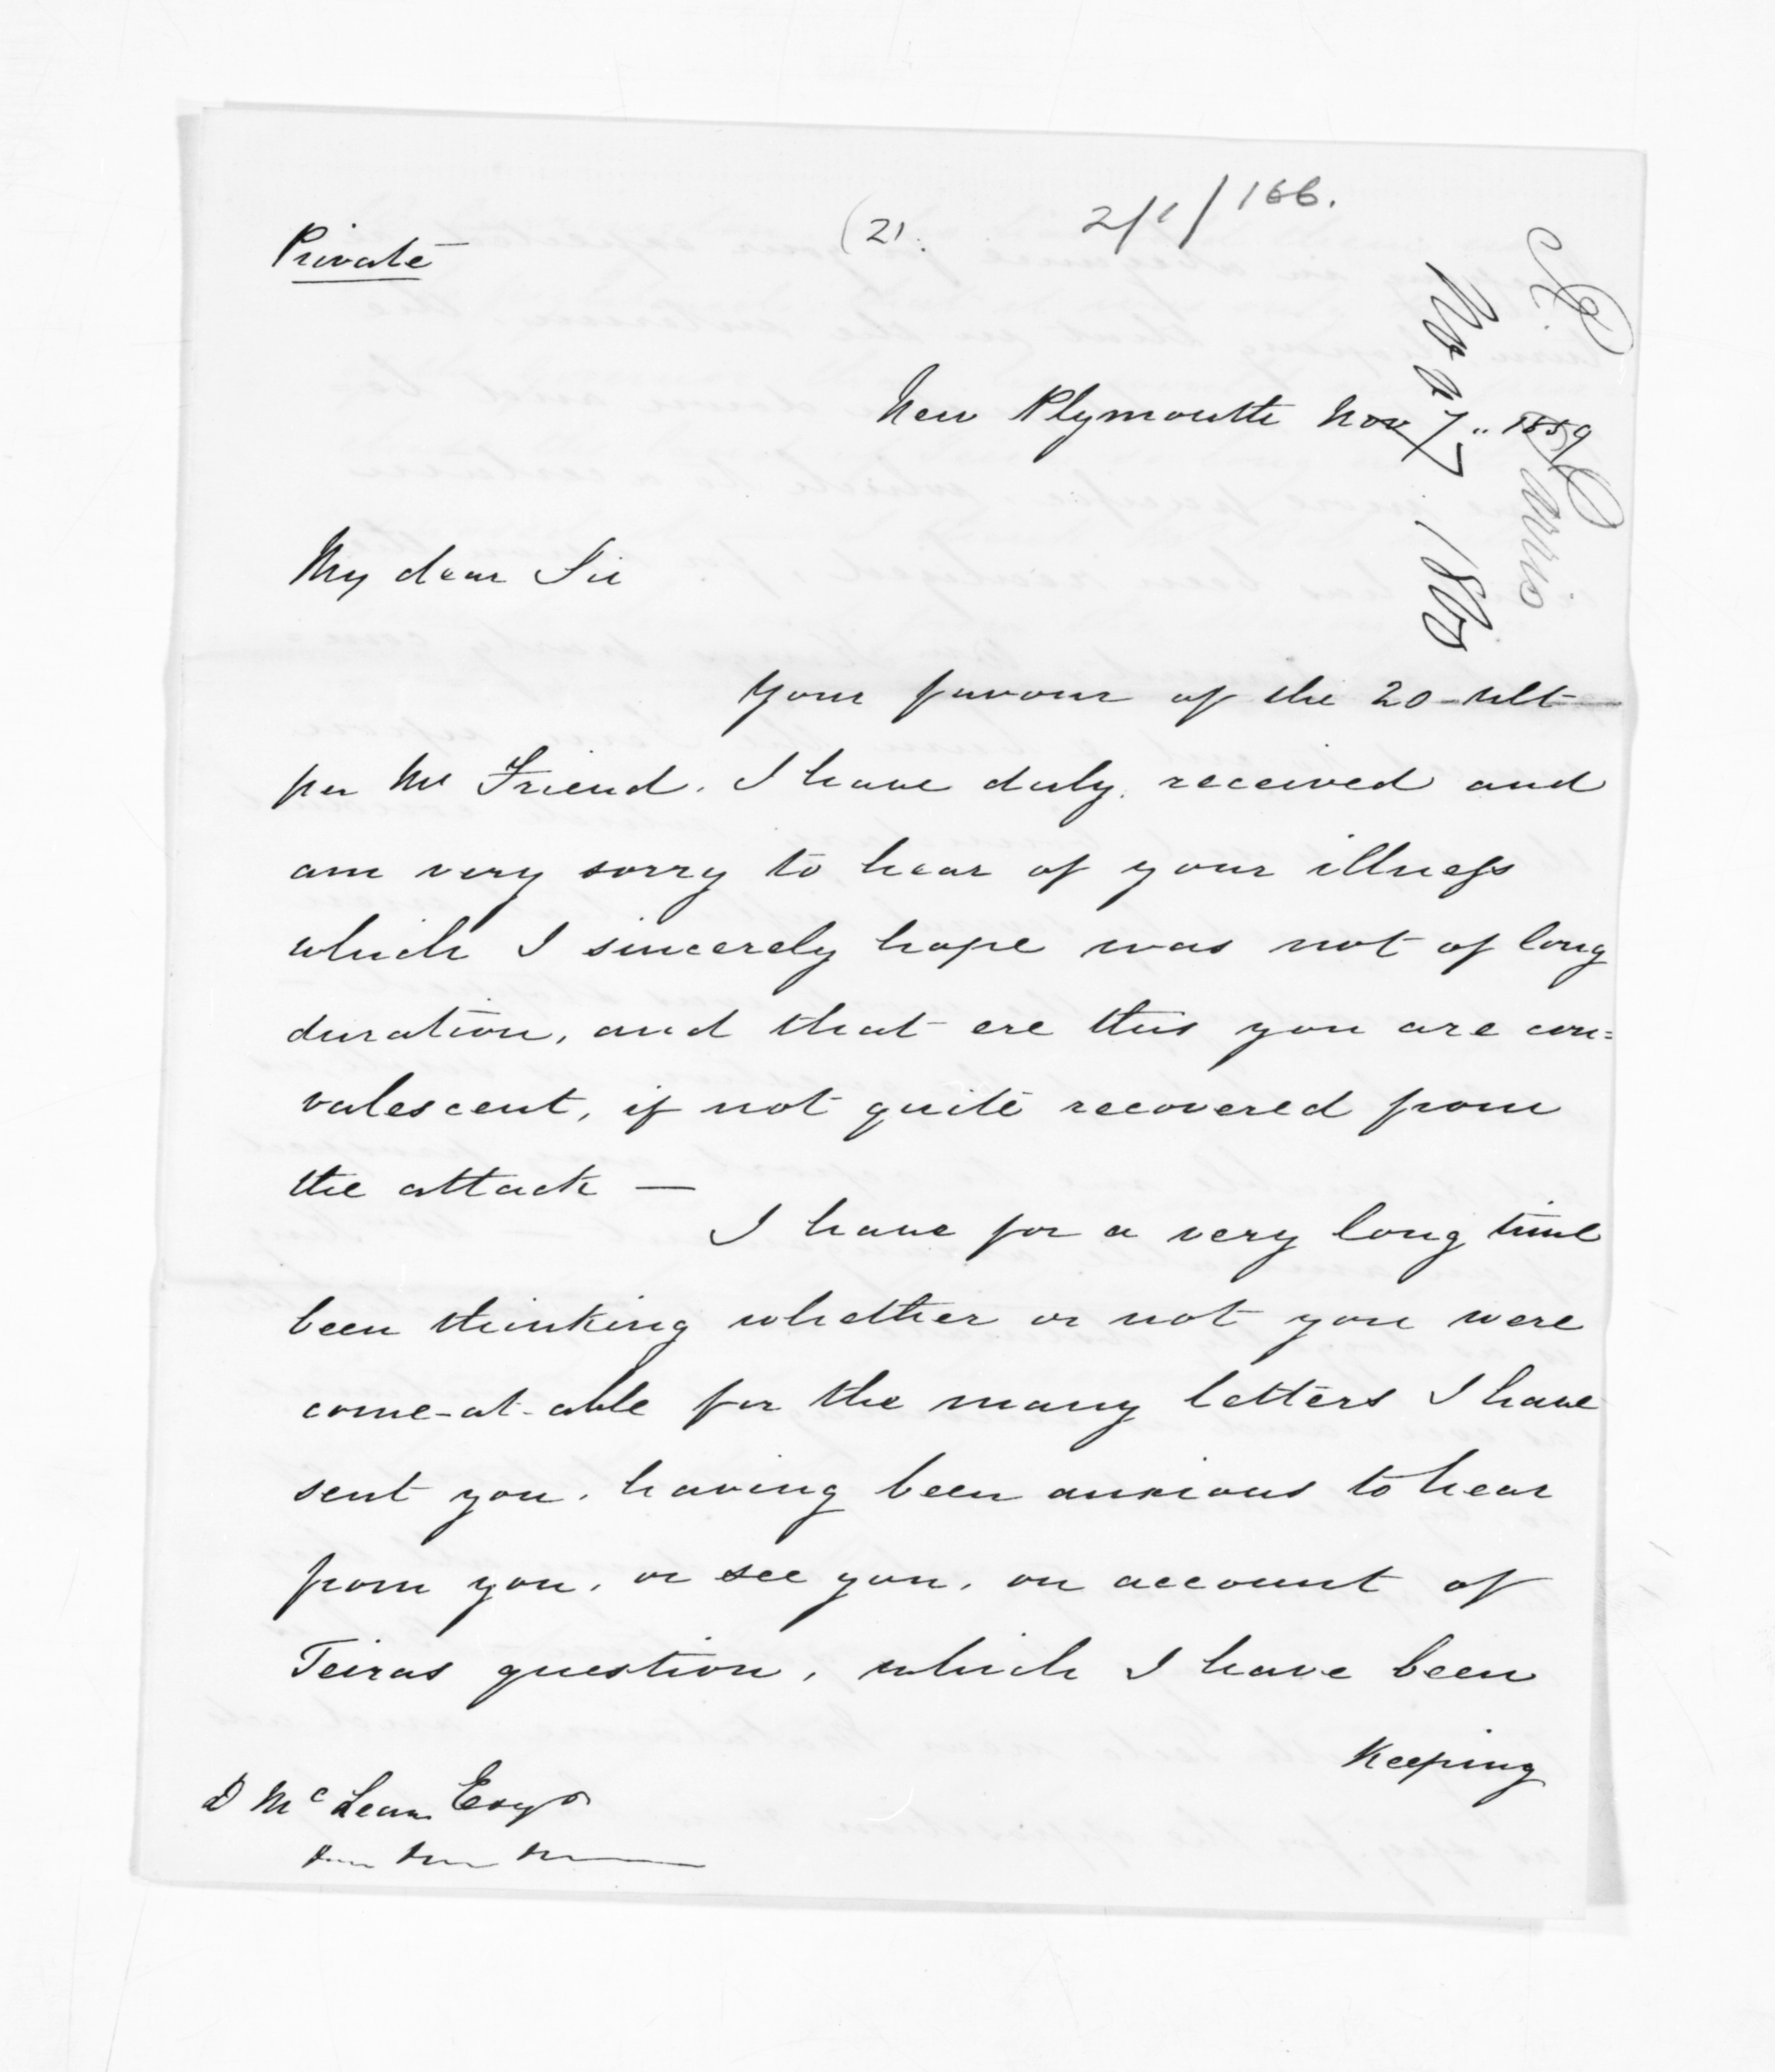 Private
(21.
2/1/166.
New Plymouth Nov 7" 1859
R. Parris
Nov 7 1860
My dear Sir
Your favour of the 20 ult
per Mr Friend. I have duly received and
am very sorry to hear of your illness
which I sincerely hope was not of long
duration, and that ere this you are con=
valescent, if not quite recovered from
the attack —
I have for a very long time
been thinking whether or not you were
come-at-able for the many letters I have
sent you, having been anxious to hear
from you, or see you, on account of
Teiras question, which I have been
Keeping
D McLean Esqr